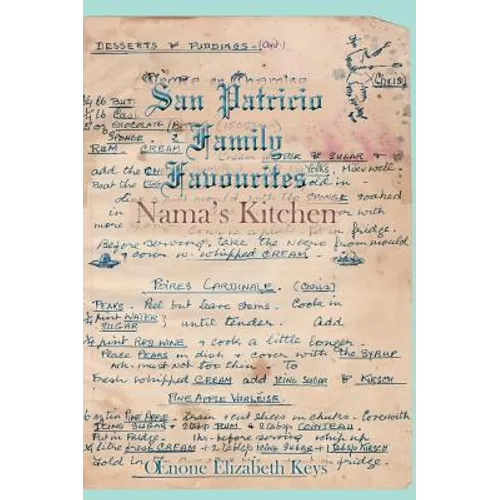 DESSERTS & PUDDINGS - (Cont.)
(Chris)
San Patricio
Family
Favourites
Nama's Kitchen
¼ lb BUT
¼ lb Cas
5 oz CHOCOLATE
SPONGE
RUM CREAM & SUGAR &
add the Yolks. Mix well.
Beat the fold in
mould with the SPONGE soaked
in with
more in fridge.
Before serving, take the Negro from mould
& cover w. whipped CREAM.
POIRES CARDINALE. (Chris)
PEARS. Peel but leave stems. Cook in
¼ pint WATER
SUGAR } until tender. Add
¼ pint RED WINE & cook a little longer.
Place PEARS in dish & cover with the SYRUP
wh. must not too thin. To
Fresh whipped CREAM add ICING SUGAR & KIRSCH
PINEAPPLE
tin PINEAPPLE. Drain & cut slices in chunks. Cover with
ICING SUGAR + 2 tblsp RUM & 2 tablsp COINTREAU.
Put in fridge. 1 hr. before serving whip up
¼ litre fresh CREAM + 2 tablsp ICING SUGAR + 1 tablsp KIRSCH
fold in the in fridge.
OEnone Elizabeth Keys